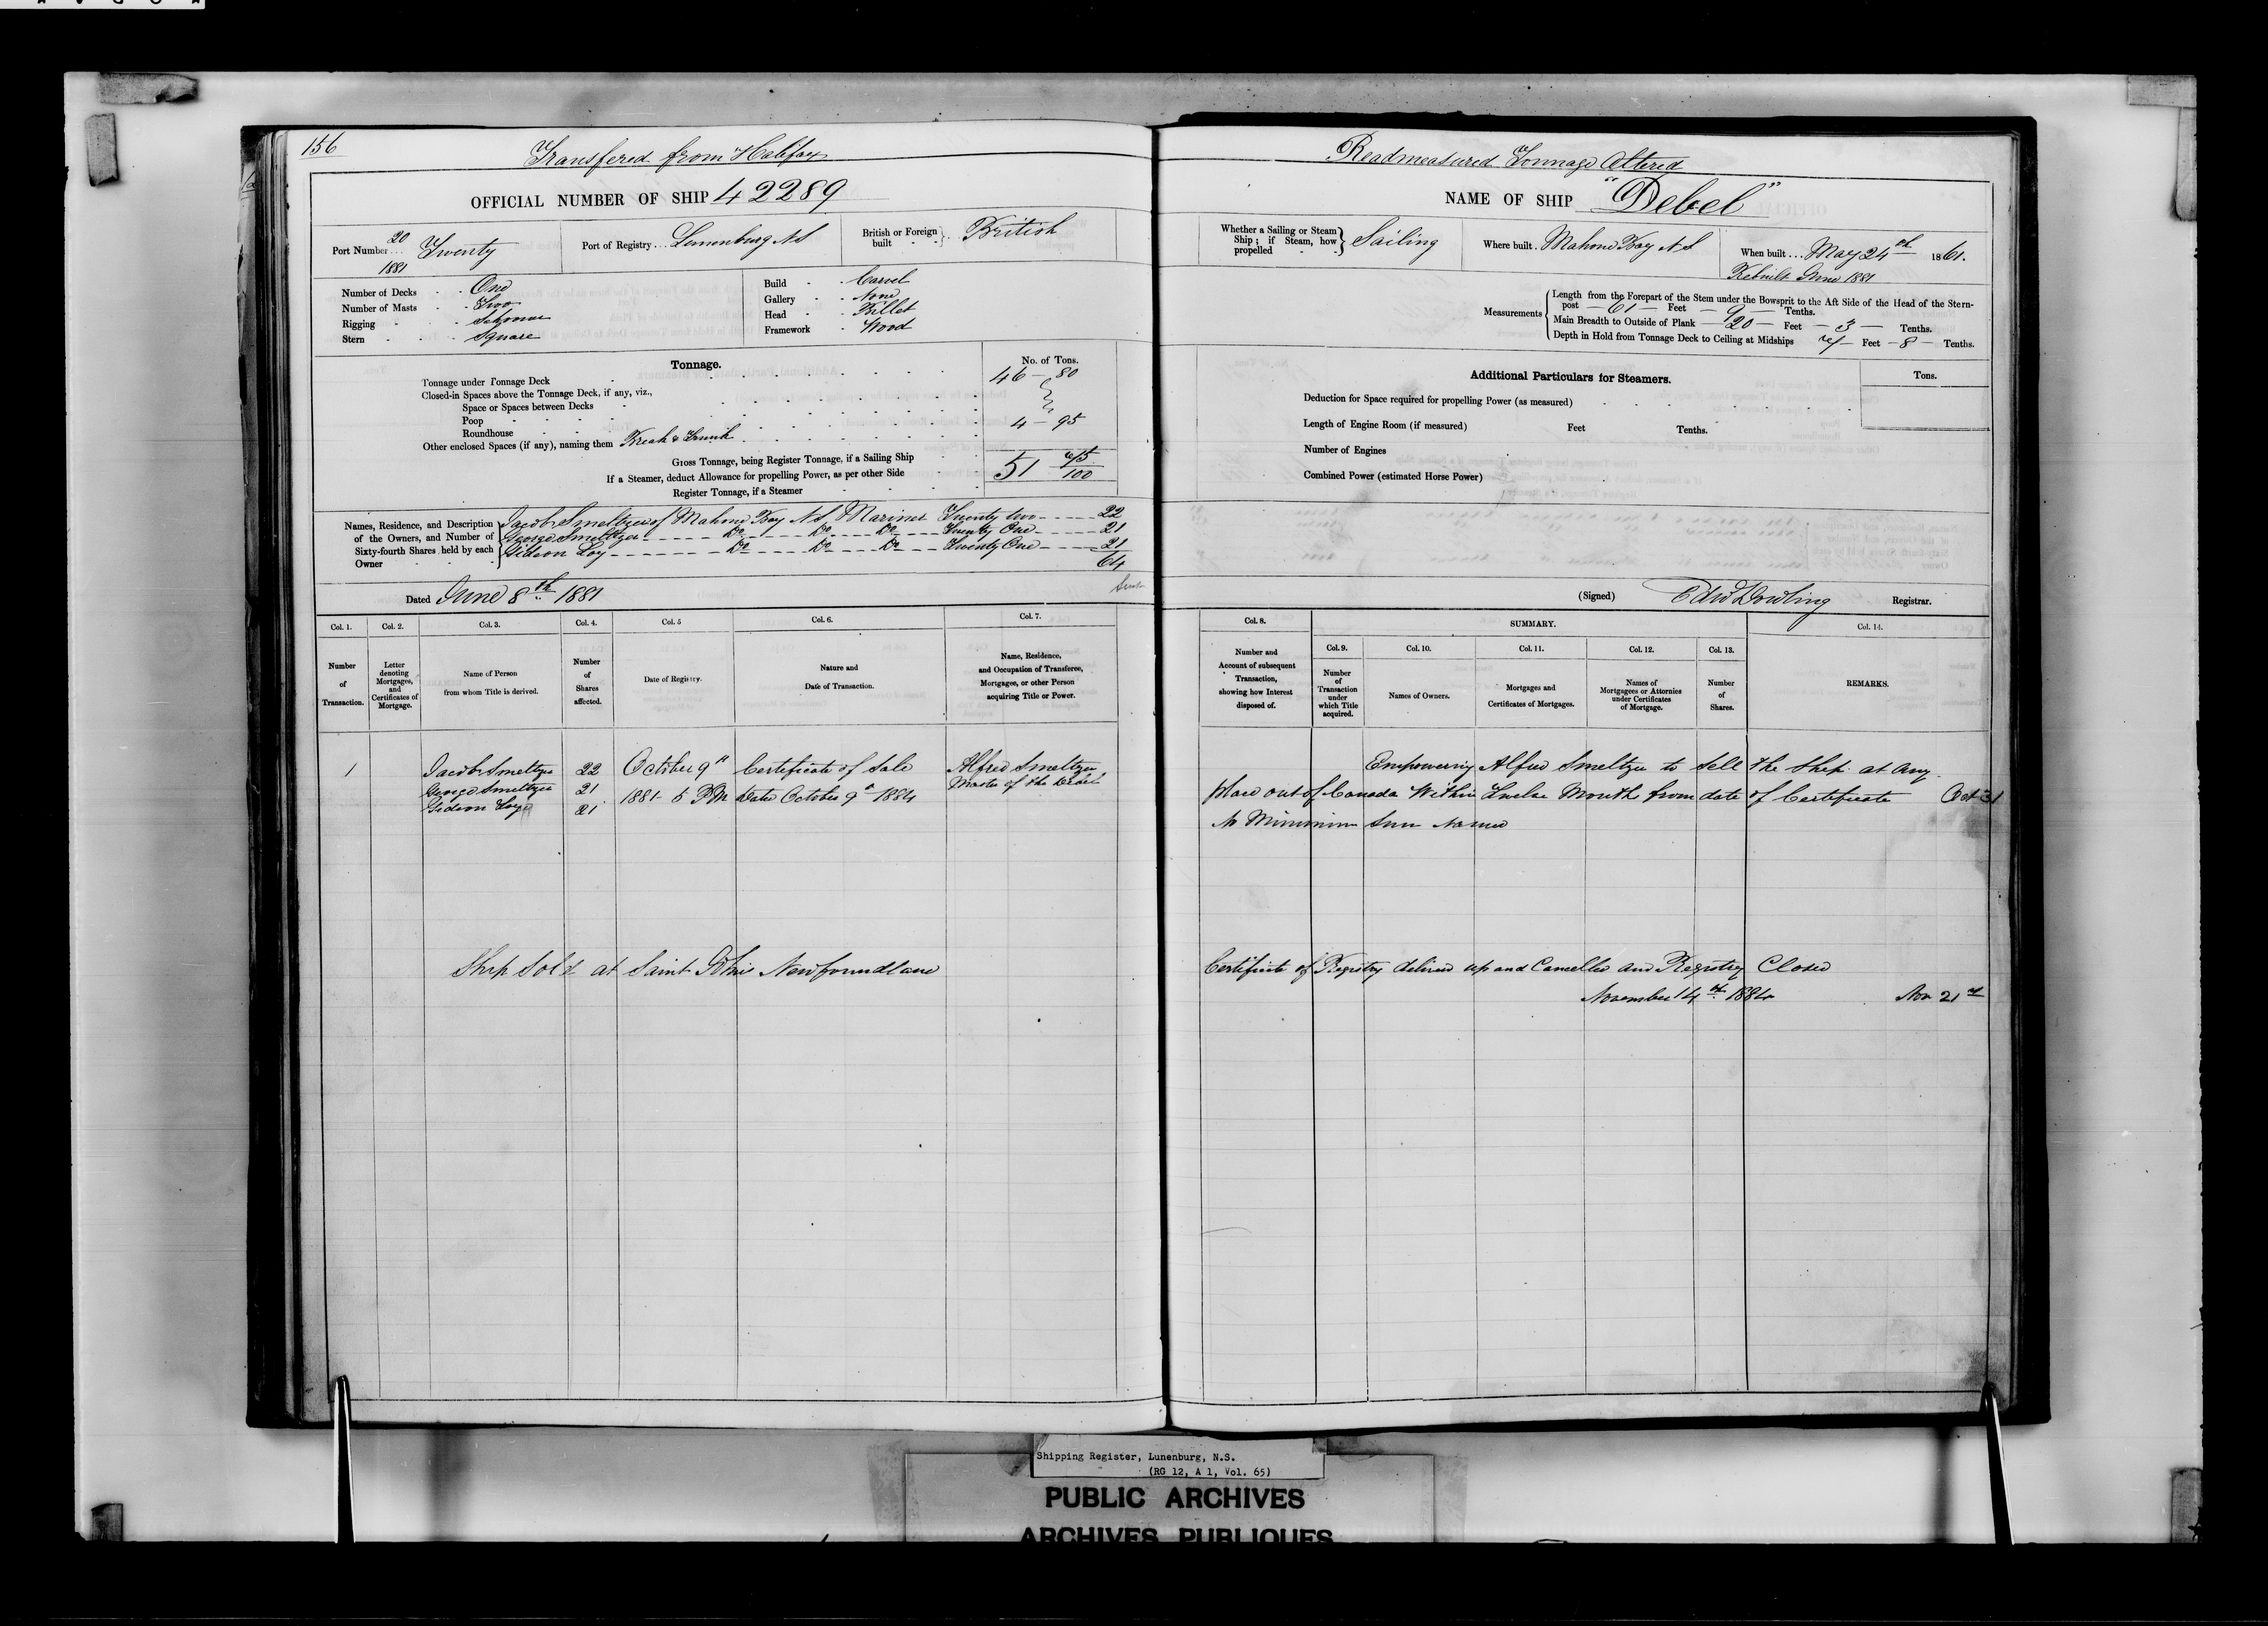 156
Transfered from Halifax
OFFICIAL NUMBER OF SHIP 42289
Port Number 20 1881 Twenty
Port of Registry Lunenburg N S
British or Foreign built British
Number of Decks One
Number of Masts Two
Rigging Schooner
Stern Square
Build Carvel
Gallery None
Head Billet
Framework Wood
Tonnage.
No. of Tons.
Tonnage under Tonnage Deck 46 - 80
Closed-in Spaces above the Tonnage Deck, if any, viz.,
Space or Spaces between Decks
Poop
Roundhouse
Other enclosed Spaces (if any), naming them Break & Trunk 4 - 95
Gross Tonnage, being Register Tonnage, if a Sailing Ship 51 75/100
If a Steamer, deduct Allowance for propelling Power, as per other Side
Register Tonnage, if a Steamer
Names, Residence, and Description of the Owners, and Number of Sixty-fourth Shares held by each Owner
Jacob Smeltzer of Mahone Bay N S Mariner Twenty two 22
George Smeltzer Do Do Do Twenty One 21
Gideon Loy Do Do Do Twenty One 21
64
Dated June 8th 1881
Col. 1. Col. 2. Col. 3. Col. 4. Col. 5 Col. 6. Col. 7.
Number of Transaction.
Letter denoting Mortgages, and Certificates of Mortgage.
Name of Person from whom Title is derived.
Number of Shares affected.
Date of Registry.
Nature and Date of Transaction.
Name, Residence, and Occupation of Transferee, Mortgagee, or other Person acquiring Title or Power.
1 Jacob Smeltzer 22 October 9th Certificate of Sale Alfred Smeltzer
George Smeltzer 21 1884 5 PM Dated October 9th 1884 Master of the Debel
Gideon Loye 21
Ship Sold at Saint Johns Newfoundland
Readmeasured Tonnage Altered
NAME OF SHIP "Debel"
Whether a Sailing or Steam Ship; if Steam, how propelled Sailing
Where built Mahone Bay N S
When built May 24th 1861.
Rebuilt June 1881
Measurements
Length from the Forepart of the Stem under the Bowsprit to the Aft Side of the Head of the Stern-
post 61 Feet 9 Tenths.
Main Breadth to Outside of Plank 20 Feet 3 Tenths.
Depth in Hold from Tonnage Deck to Ceiling at Midships 7 Feet 8 Tenths.
Additional Particulars for Steamers.
Tons.
Deduction for Space required for propelling Power (as measured)
Length of Engine Room (if measured) Feet Tenths.
Number of Engines
Combined Power (estimated Horse Power)
(Signed) Edw Dowling Registrar.
Col. 8. SUMMARY. Col. 14.
Col. 9. Col. 10. Col. 11. Col. 12. Col. 13.
Number and Account of subsequent Transaction, showing how Interest disposed of.
Number of Transaction under which Title acquired.
Names of Owners.
Mortgages and Certificates of Mortgages.
Names of Mortgagees or Attornies under Certificates of Mortgage.
Number of Shares.
REMARKS.
Empowering Alfred Smeltzer to Sell the Ship at any
place out of Canada Within Twelve Months from date of Certificate Oct 31
No Minimum Sum Named
Certificate of Registry delivered up and Cancelled and Registry Closed
November 14th 1884 Nov 21st
Shipping Register, Lunenburg, N.S.
(RG 12, A 1, Vol. 65)
PUBLIC ARCHIVES
ARCHIVES PUBLIQUES